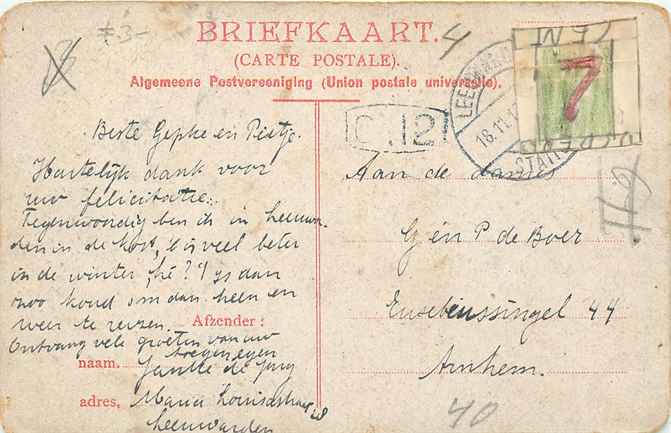 BRIEFKAART.
(CARTE POSTALE).
Algemeene Postvereeniging (Union postale universelle).
7
4
F 3-
12
18.11.1
STATI
Beste Gepke en Pietje.
Hartelijk dank voor
uw felicitatie.
Tegenwoordig ben ik in Leeuwar-
den in de kost, 't is veel beter
in de winter, hè? 't Is dan
zoo koud om dan heen en
weer te reizen.
Ontvang vele groeten van uw
toegenegen
Afzender:
naam. Jantje de Jong
adres, Maria Louisastraat 28
Leeuwarden
Aan de dames
G en P de Boer
Eusebiussingel 44
Arnhem.
40